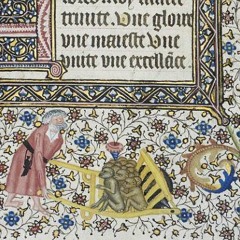 trinite. Vne gloire
vne maieste Vne
vnite vne excellãce